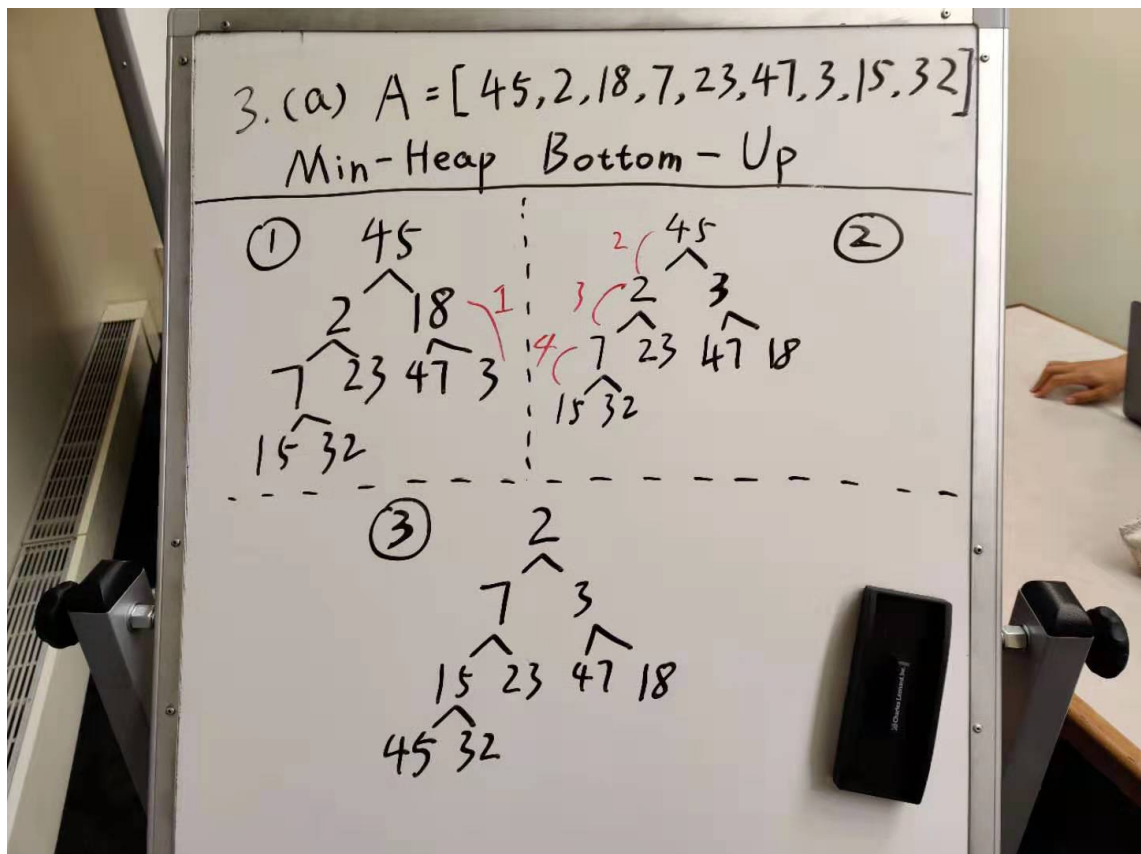 3. (a) A = [45, 2, 18, 7, 23, 47, 3, 15, 32]
Min-Heap Bottom-Up
①
45
2 18 1
7 23 47 3
15 32
②
2 45
3 2 3
4 7 23 47 18
15 32
③
2
7 3
15 23 47 18
45 32